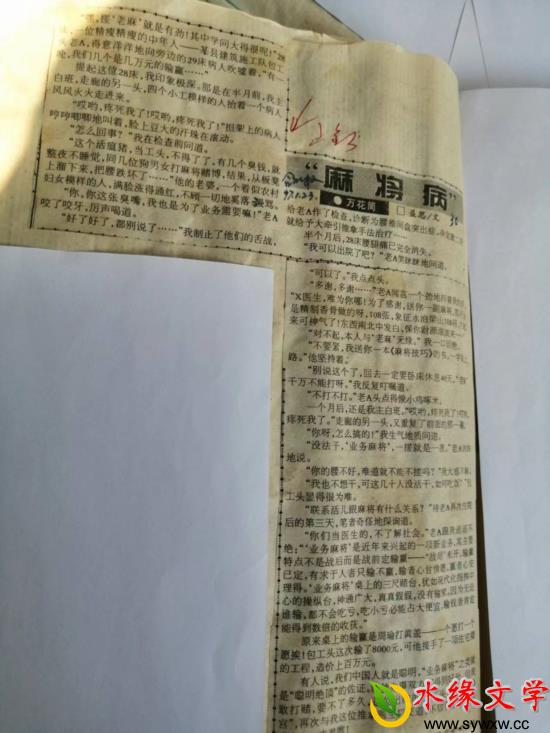 "嘿,搓'老麻'就是有劲!其中学问大得很呢!"28
床,一位精瘦精瘦的中年人——某县建筑施工队包工
头老A,得意洋洋地向旁边的29床病人吹嘘着,"有一
晚,我们几个是几万元的输赢……"
提起这位28床,我印象极深。那是在半月前,我主
白班,走廊的另一头,四个小工模样的人抬着一个病人
风风火火走进来。
"哎哟,疼死我了!哎哟,疼死我了!"担架上的病人
哼哼唧唧地叫着,脸上豆大的汗珠在滚动。
"怎么回事?"我在检查前问道。
"这个活瘟猪,当工头,不得了了,有几个臭钱,就
整夜不睡觉,同几位狗男女打麻将赌博,结果,从板凳
上溜下来,把腰跌坏了……"他的老婆,一个看似农村
妇女模样的人,满脸涨得通红,不顾一切地奚落
"你,你这张臭嘴,我也是为了业务需要嘛!"老A
咬了咬牙,厉声喝道。
"好了好了,都别说了……"我制止了他们的舌战,
"麻将病"
●万花筒
给老A作了检查,诊断为腰椎间盘突出症
就给予大牵引推拿手法治疗
半个月后,28床腰腿痛已完全消失。
"我可以出院了吧?"老A笑眯眯地问道。
"可以。"我点点头。
"多谢,多谢……"老A
"X医生,难为你哪!为了感谢,送你一副
是精制香骨做的呀,108张,象征水泊梁山108
来可神气了!东西南北中发白,保你财源滚滚来
"对不起,本人与'老麻'无缘。"我一口回绝。
"不要紧,我送你一本《麻将技巧》的书
路。"他坚持着。
"别说这个了,回去一定要卧床休息
千万不能打呀。"我反复叮嘱道。
"不打不打。"老A头点得像小鸡啄米。
一个月后,还是我主白班。"哎哟,疼死我了!哎哟,
疼死我了。"走廊的另一头,又重复了前面的那一幕。
"你呀,怎么搞的!"我生气地质问道。
"没法子,'业务麻将',一摆就是一宵。"老A
地说。
"你的腰不好,难道就不能不搓吗?"我大惑不解。
"我也不想干,可这几十人没活干,如何吃饭?"包
工头显得很为难。
"联系活儿跟麻将有什么关系?"待老A再次住院
后的第三天,笔者奇怪地探询道。
"你们当医生的,不了解社会。"老A
绝:"'业务麻将'是近年来兴起的一项新业务,其主要
特点不是战后而是战前定输赢——'战场'未开,输赢
已定,有求于人者只输不赢,输者心甘情愿,赢者心安
理得。'业务麻将'桌上的三尺赌台,犹如现代化指挥中
心的操纵台,神通广大,真真假假,没有输家,因为无论
谁输,都不会吃亏,吃小亏必能占大便宜,输钱者将
能得到数倍的收获。"
原来桌上的输赢是周瑜打黄盖——一个愿打一个
愿挨!包工头这次输了8000元,可他揽手了一项住宅楼
的工程,造价上百万元。
有人说,我们中国人就是聪明,"业务麻将"之类就
是"聪明绝顶"的佐证。
敢打赌,要不了多久,
宫",再次与我这位推
水缘文学
www.sywxw.cc